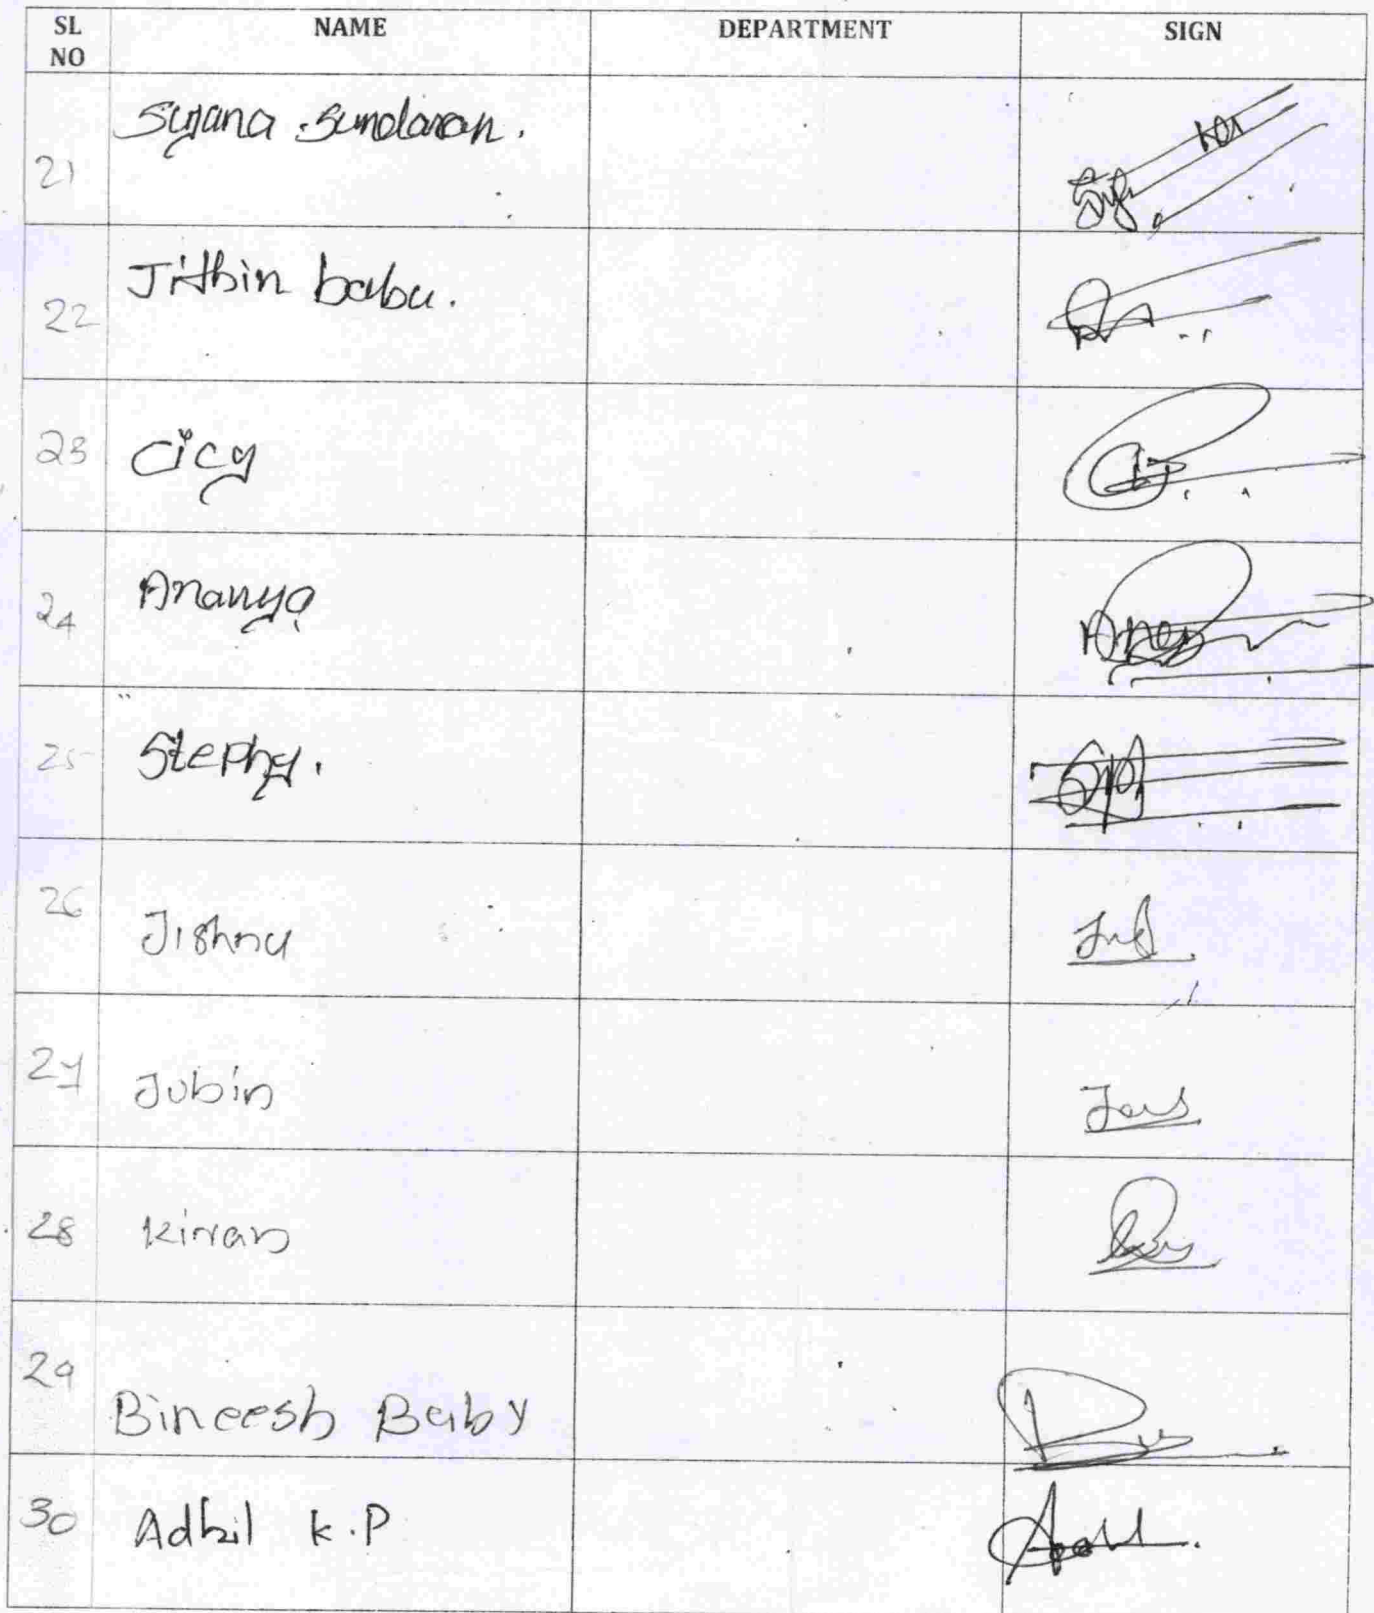 SL NO NAME DEPARTMENT SIGN
21 Sujana Sundaran.
22 Jithin babu.
23 Cicy
24 Ananya
25 Stephy.
26 Jishnu
27 Jubin
28 Kiran
29 Bineesh Baby
30 Adhil K.P